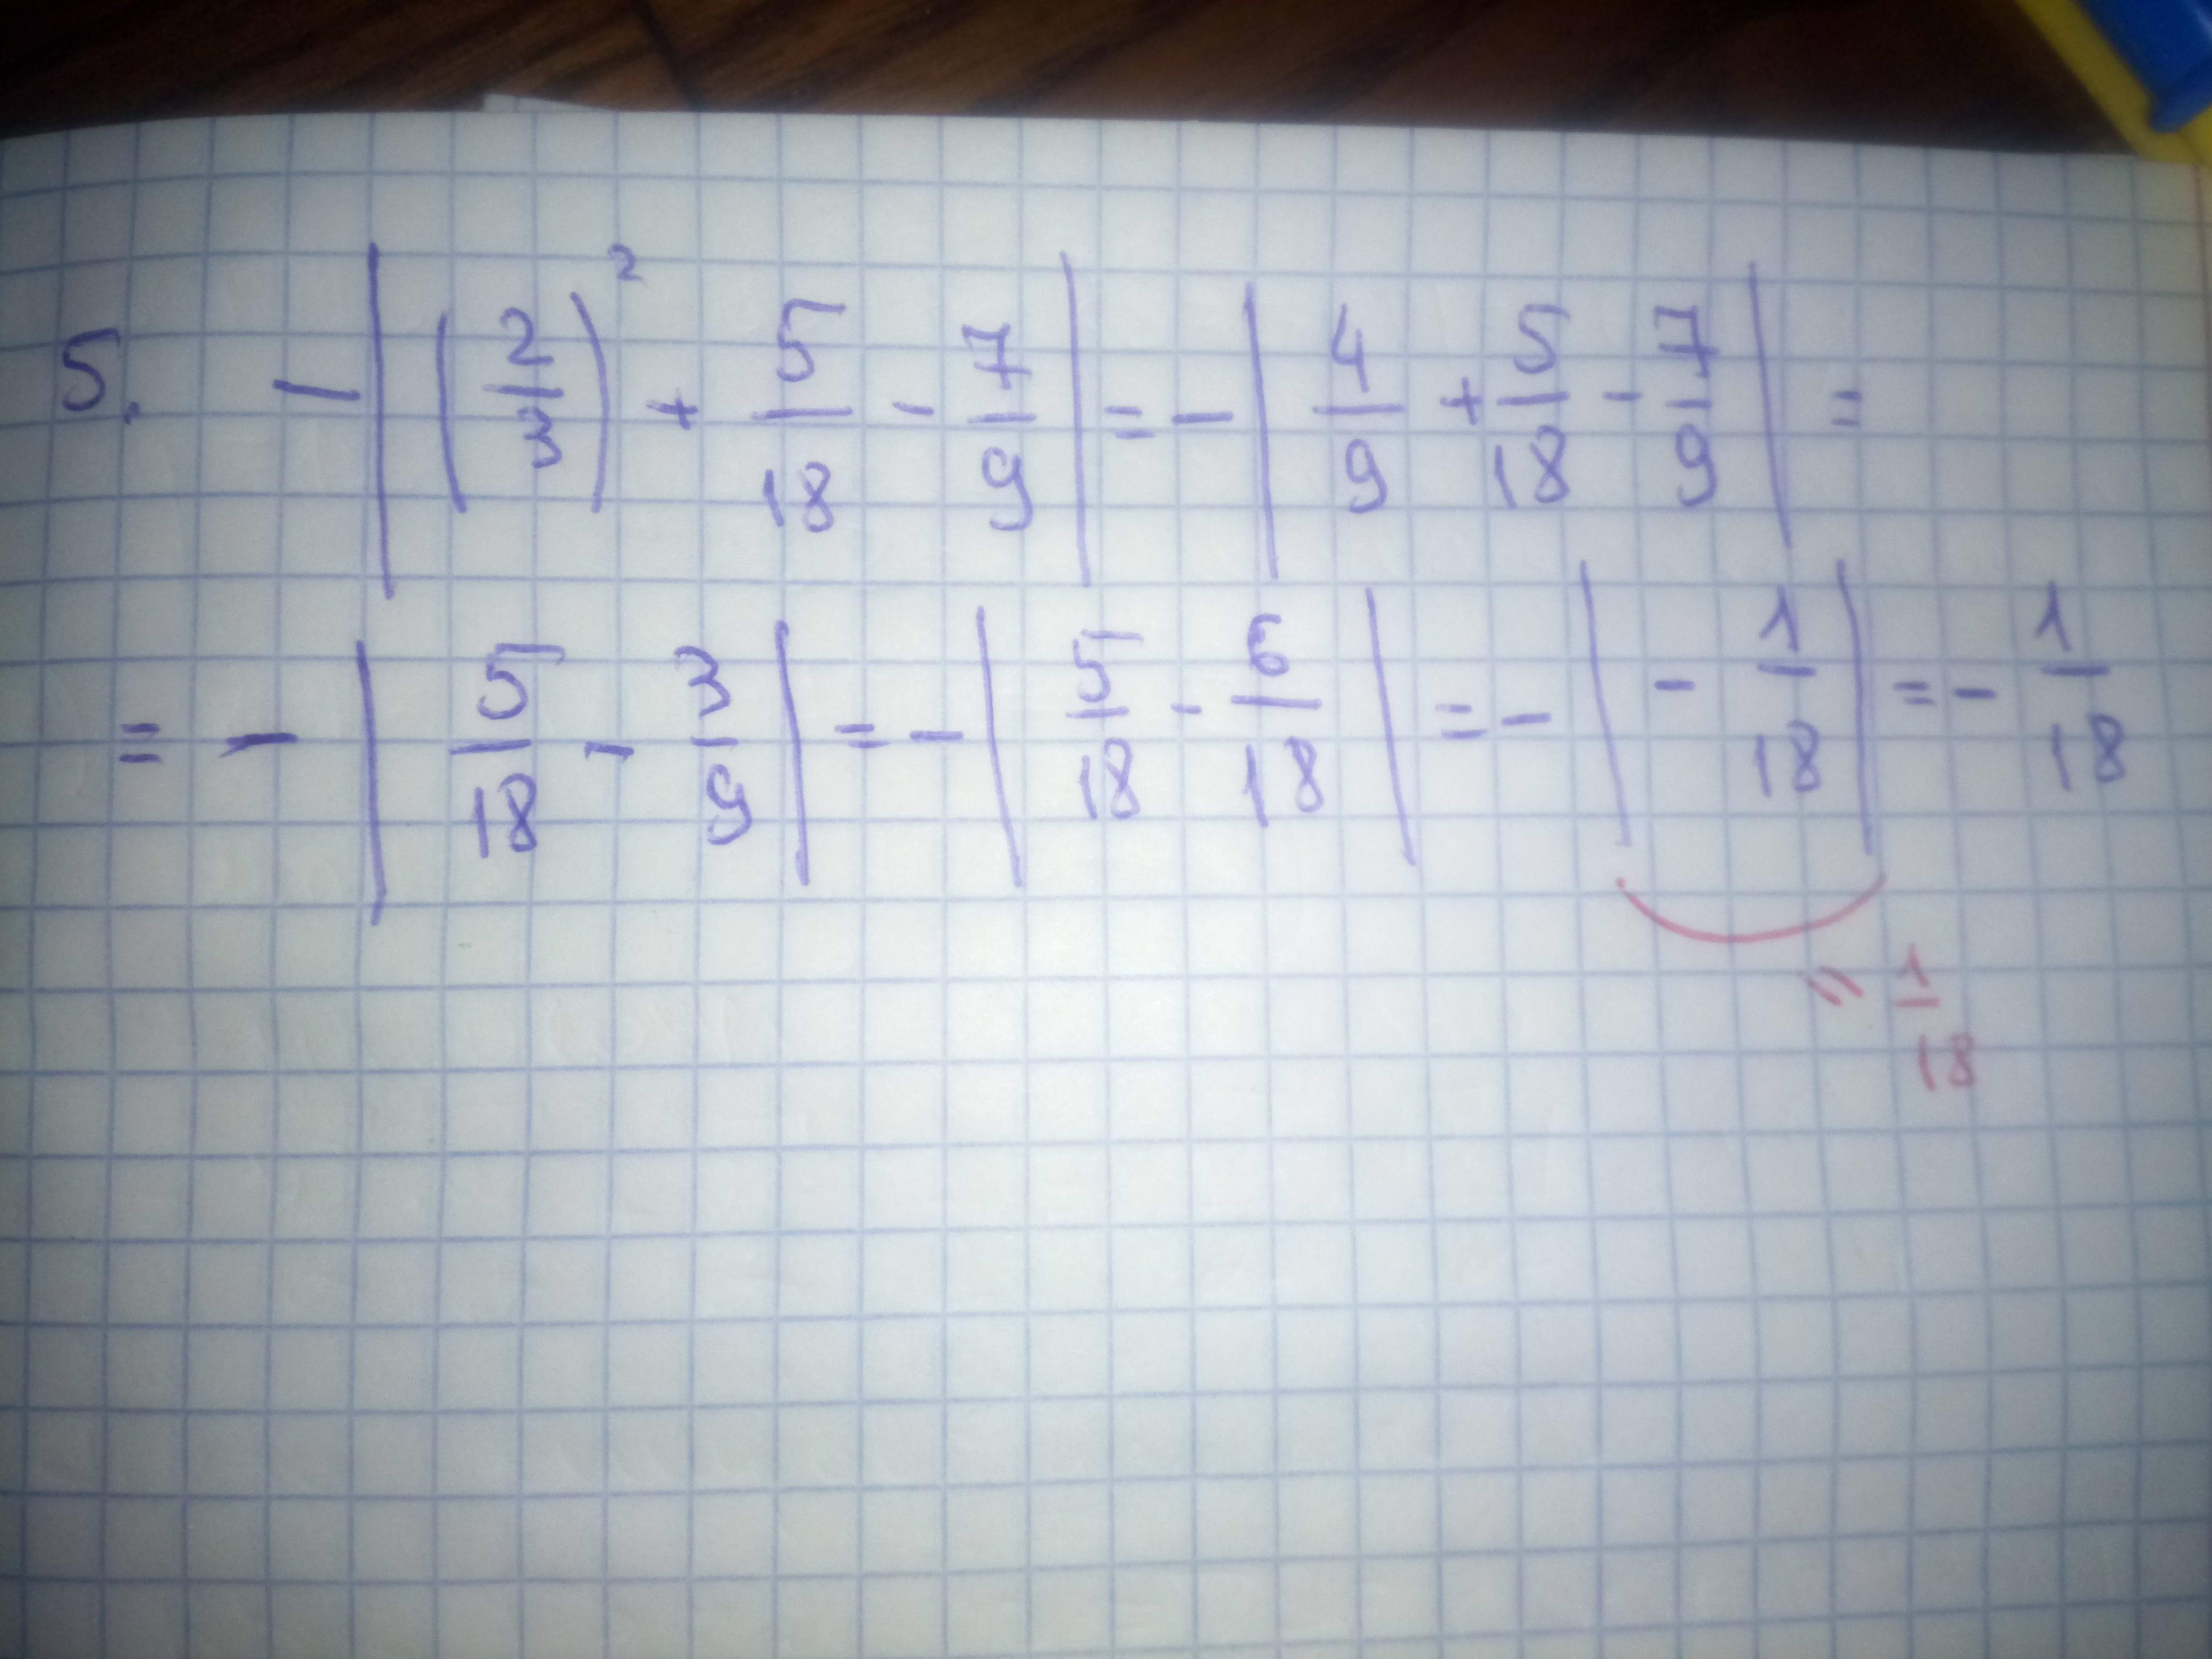 5. -|(2/3)² + 5/18 - 7/9| = -|4/9 + 5/18 - 7/9| =
= -|5/18 - 3/9| = -|5/18 - 6/18| = -|-1/18| = -1/18
= 1/18